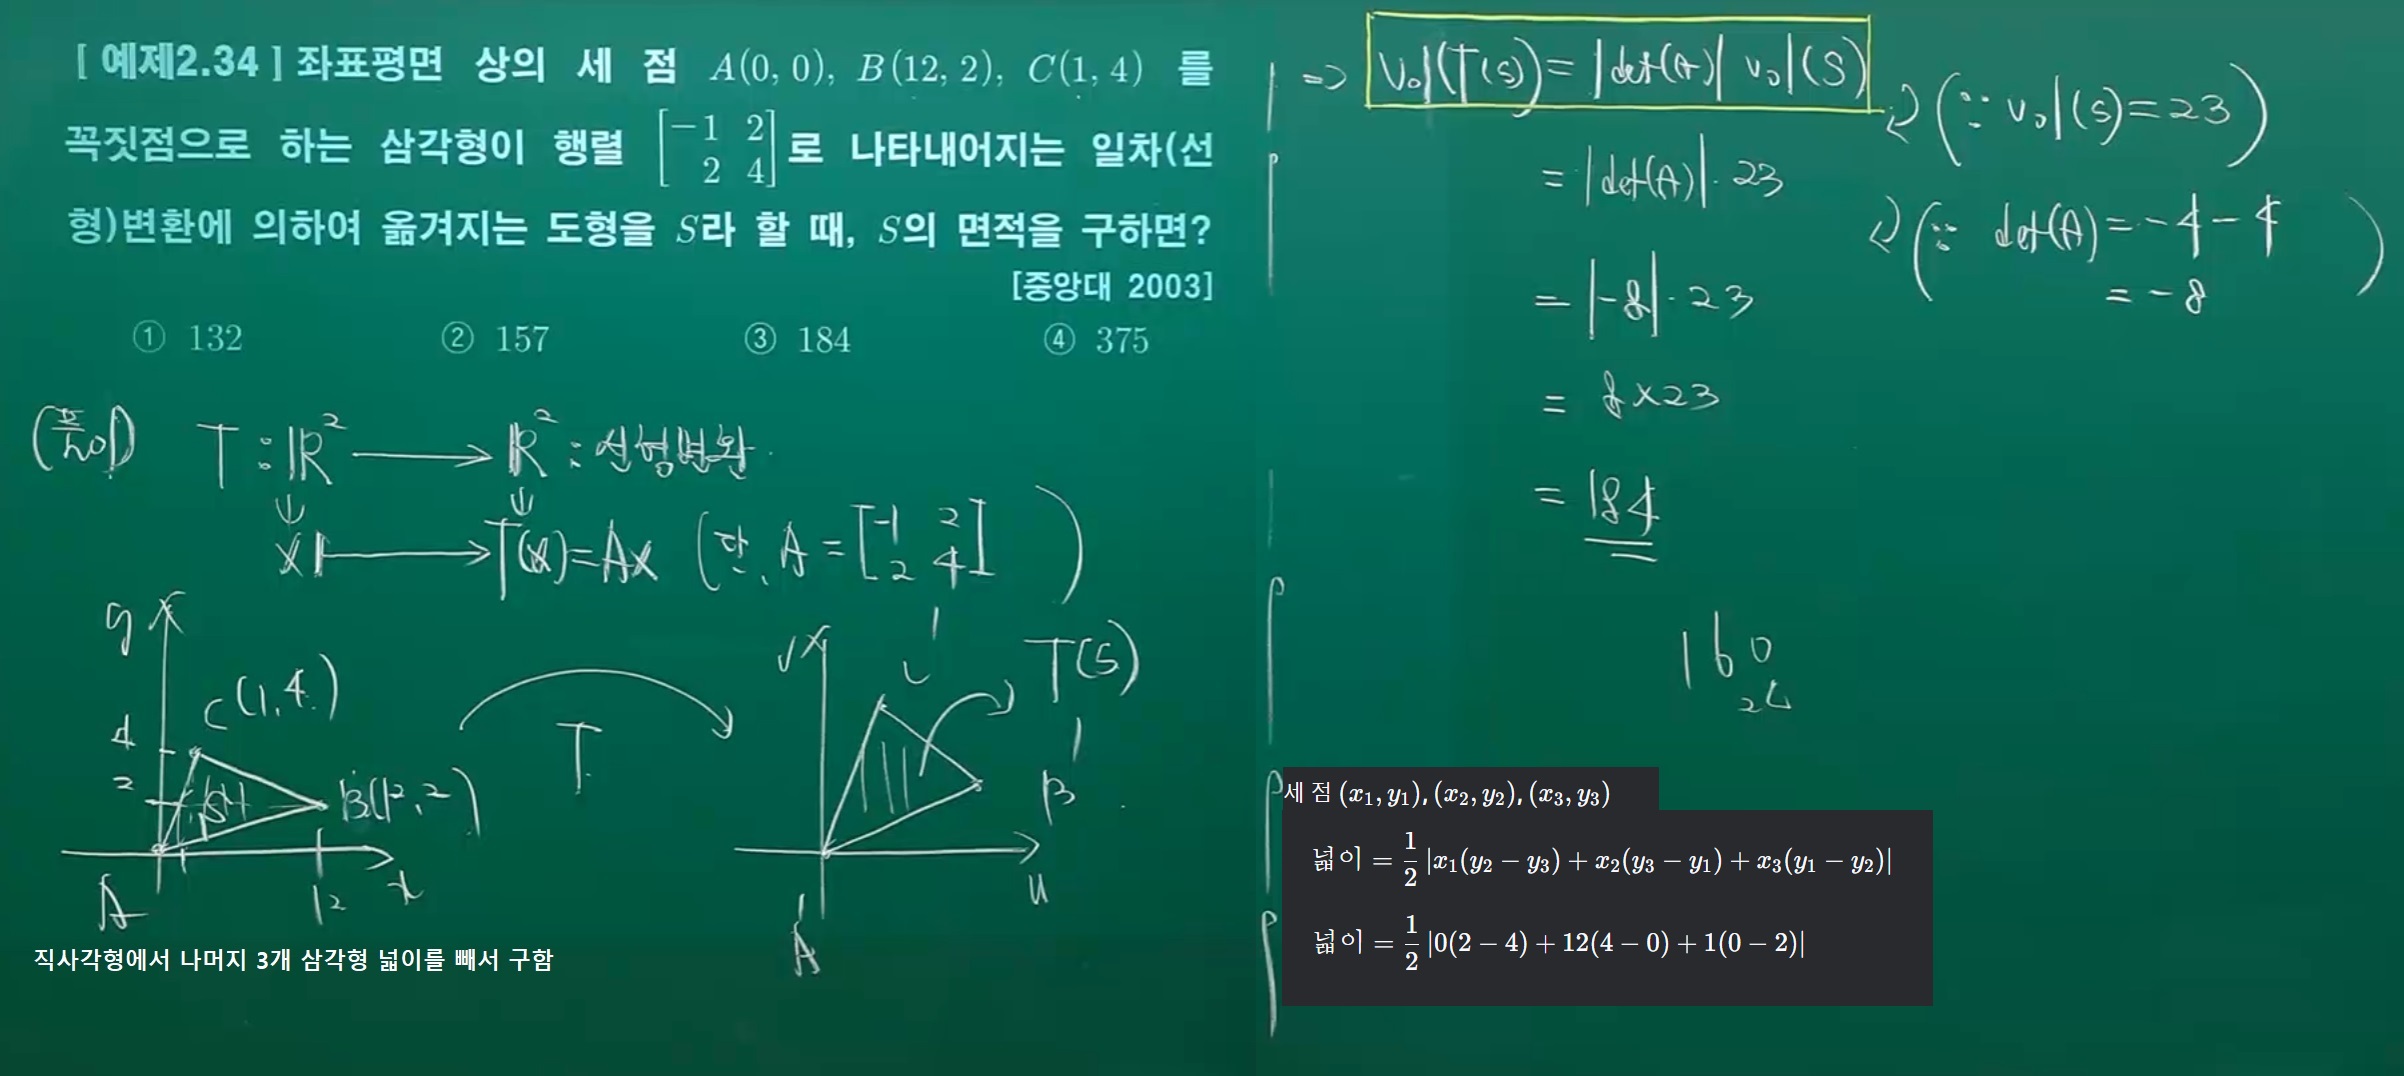 [ 예제2.34 ] 좌표평면 상의 세 점 A(0, 0), B(12, 2), C(1, 4) 를
꼭짓점으로 하는 삼각형이 행렬 [-1 2; 2 4]로 나타내어지는 일차(선
형)변환에 의하여 옮겨지는 도형을 S라 할 때, S의 면적을 구하면?
[중앙대 2003]
① 132 ② 157 ③ 184 ④ 375
(풀이) T : ℝ² → ℝ² : 선형변환
x ↦ T(x)=Ax (단, A = [-1 2; 2 4])
y
C(1, 4)
4
2
S
B(12, 2)
A
12
x
T
v
C'
T(S)
B'
A'
u
직사각형에서 나머지 3개 삼각형 넓이를 빼서 구함
⇒ vol(T(S)) = |det(A)| vol(S)
(∵ vol(S) = 23)
= |det(A)| · 23
(∵ det(A) = -4-4
= -8)
= |-8| · 23
= 8×23
= 184
160
24
세 점 (x₁, y₁), (x₂, y₂), (x₃, y₃)
넓이 = 1/2 |x₁(y₂ − y₃) + x₂(y₃ − y₁) + x₃(y₁ − y₂)|
넓이 = 1/2 |0(2 − 4) + 12(4 − 0) + 1(0 − 2)|